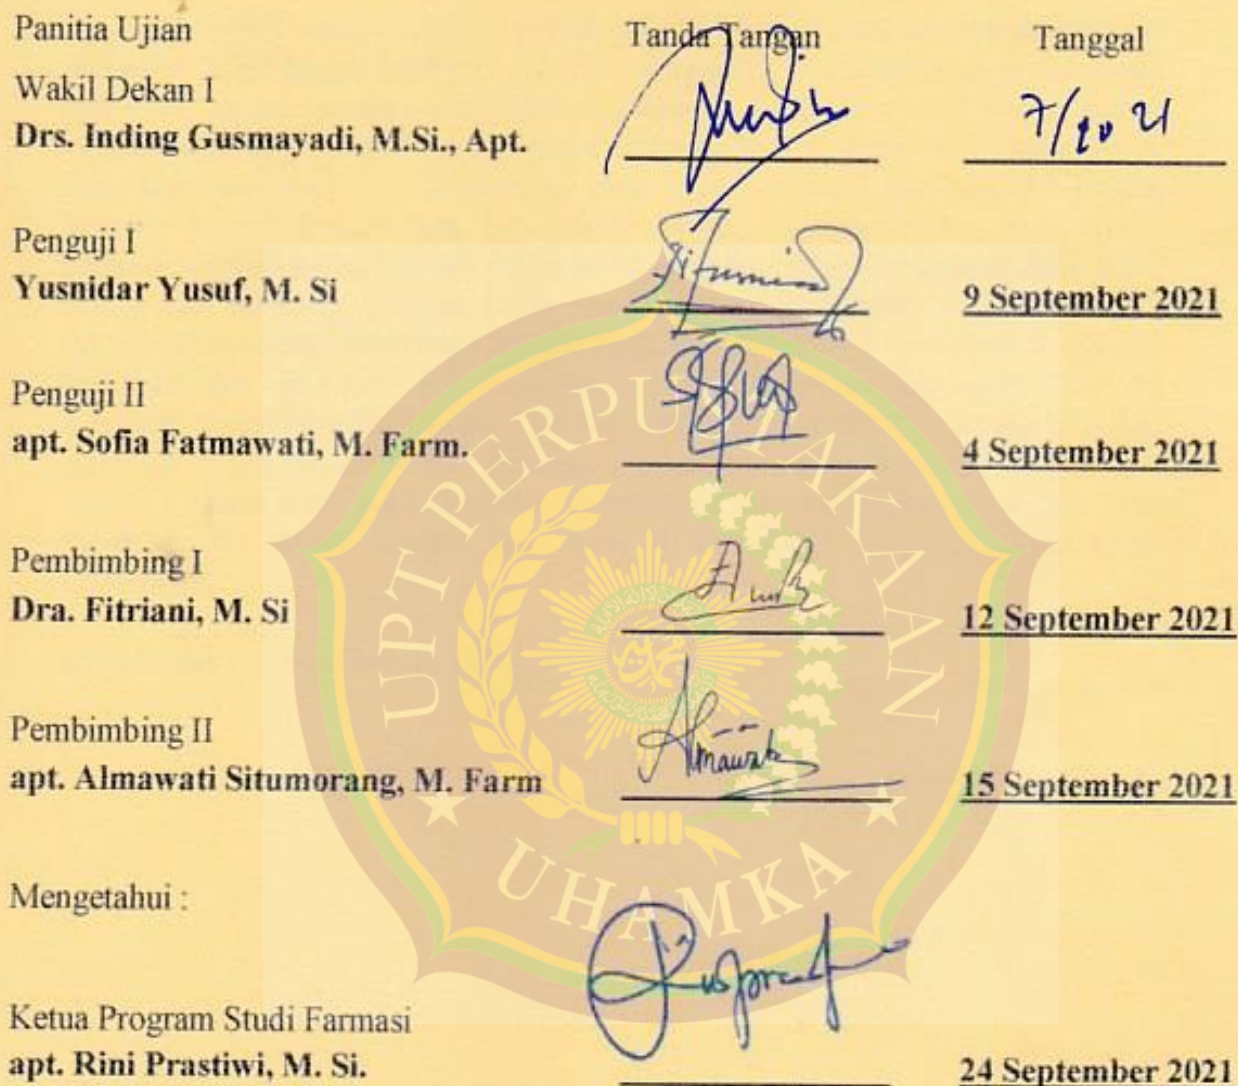 Panitia Ujian Tanda Tangan Tanggal
Wakil Dekan I
Drs. Inding Gusmayadi, M.Si., Apt. 7/10 21
Penguji I
Yusnidar Yusuf, M. Si 9 September 2021
Penguji II
apt. Sofia Fatmawati, M. Farm. 4 September 2021
Pembimbing I
Dra. Fitriani, M. Si 12 September 2021
Pembimbing II
apt. Almawati Situmorang, M. Farm 15 September 2021
Mengetahui :
Ketua Program Studi Farmasi
apt. Rini Prastiwi, M. Si. 24 September 2021
UPT PERPUSTAKAAN
UHAMKA